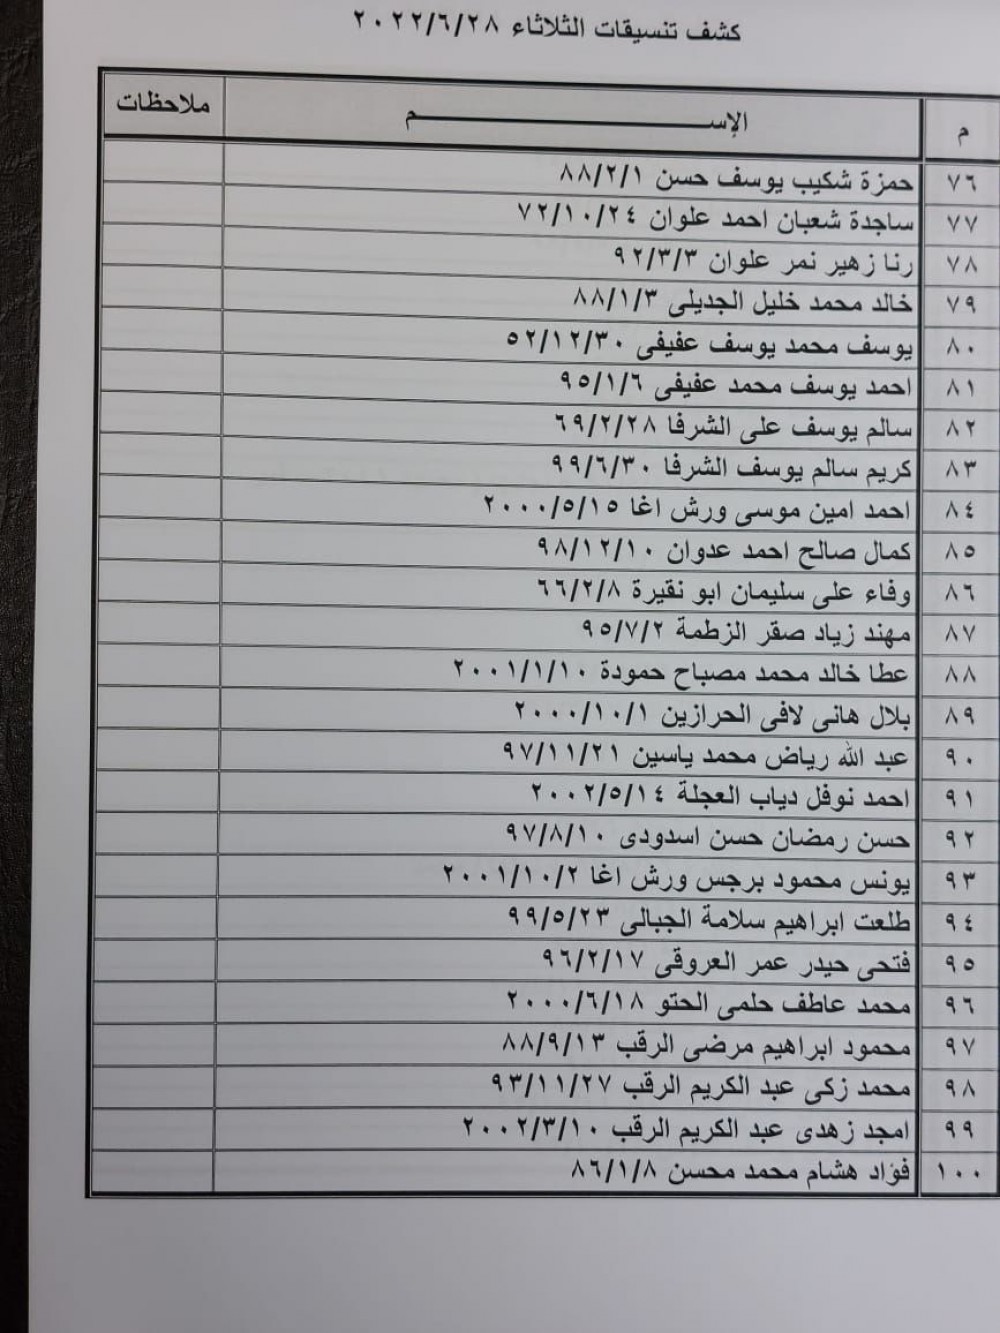 كشف تنسيقات الثلاثاء ٢٠٢٢/٦/٢٨
م الإســـــــم ملاحظات
٧٦ حمزة شكيب يوسف حسن ٨٨/٢/١
٧٧ ساجدة شعبان احمد علوان ٧٢/١٠/٢٤
٧٨ رنا زهير نمر علوان ٩٢/٣/٣
٧٩ خالد محمد خليل الجديلى ٨٨/١/٣
٨٠ يوسف محمد يوسف عفيفى ٥٢/١٢/٣٠
٨١ احمد يوسف محمد عفيفى ٩٥/١/٦
٨٢ سالم يوسف على الشرفا ٦٩/٢/٢٨
٨٣ كريم سالم يوسف الشرفا ٩٩/٦/٣٠
٨٤ احمد امين موسى ورش اغا ٢٠٠٠/٥/١٥
٨٥ كمال صالح احمد عدوان ٩٨/١٢/١٠
٨٦ وفاء على سليمان ابو نقيرة ٦٦/٢/٨
٨٧ مهند زياد صقر الزطمة ٩٥/٧/٢
٨٨ عطا خالد محمد مصباح حمودة ٢٠٠١/١/١٠
٨٩ بلال هانى لافى الحرازين ٢٠٠٠/١٠/١
٩٠ عبد الله رياض محمد ياسين ٩٧/١١/٢١
٩١ احمد نوفل دياب العجلة ٢٠٠٢/٥/١٤
٩٢ حسن رمضان حسن اسدودى ٩٧/٨/١٠
٩٣ يونس محمود برجس ورش اغا ٢٠٠١/١٠/٢
٩٤ طلعت ابراهيم سلامة الجبالى ٩٩/٥/٢٣
٩٥ فتحى حيدر عمر العروقى ٩٦/٢/١٧
٩٦ محمد عاطف حلمى الحتو ٢٠٠٠/٦/١٨
٩٧ محمود ابراهيم مرضى الرقب ٨٨/٩/١٣
٩٨ محمد زكى عبد الكريم الرقب ٩٣/١١/٢٧
٩٩ امجد زهدى عبد الكريم الرقب ٢٠٠٢/٣/١٠
١٠٠ فؤاد هشام محمد محسن ٨٦/١/٨